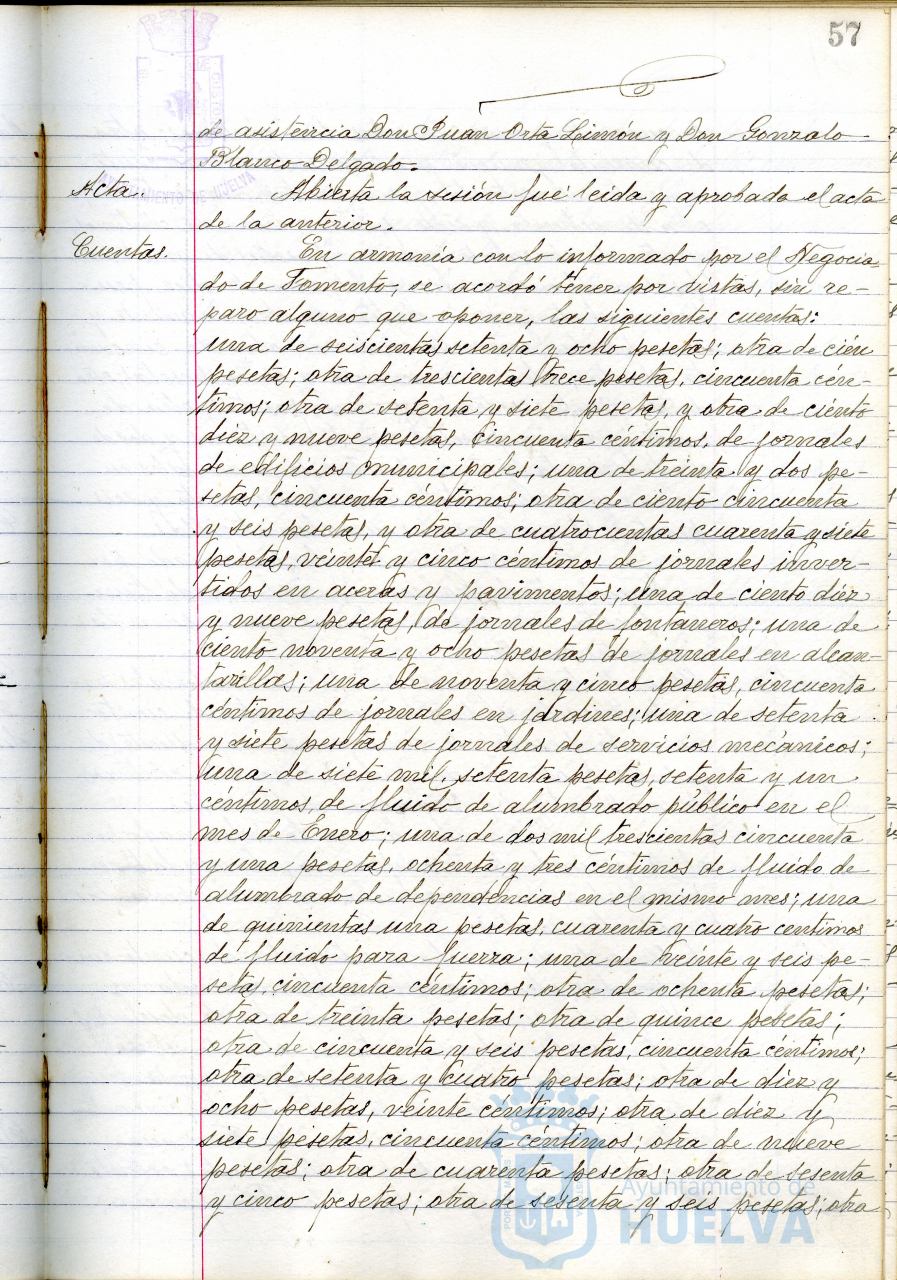 57
de asistencia Don Juan Orta Limón y Don Gonzalo
Blanco Delgado.
Acta.
Abierta la sesión fué leida y aprobada el acta
de la anterior.
Cuentas.
En armonía con lo informado por el Negocia-
do de Fomento, se acordó tener por vistas, sin re-
paro alguno que oponer, las siguientes cuentas:
una de seiscientas setenta y ocho pesetas; otra de cién
pesetas; otra de trescientas trece pesetas, cincuenta cén-
timos; otra de setenta y siete pesetas, y otra de ciénto
diéz y nueve pesetas, cincuenta céntimos, de jornales
de edificios municipales; una de treinta y dos pe-
setas, cincuenta céntimos; otra de ciento cincuenta
y seis pesetas, y otra de cuatrocientas cuarenta y siete
pesetas, veinte y cinco céntimos de jornales inver-
tidos en aceras y pavimentos; una de ciento diéz
y nueve pesetas, de jornales de fontaneros; una de
ciento noventa y ocho pesetas de jornales en alcan-
tarillas; una de noventa y cinco pesetas, cincuenta
céntimos de jornales en jardines; una de setenta
y siete pesetas de jornales de servicios mecánicos;
una de siete mil setenta pesetas, setenta y un
céntimos, de fluido de alumbrado público en el
mes de Enero; una de dos mil trescientas cincuenta
y una pesetas, ochenta y tres céntimos de fluido de
alumbrado de dependencias en el mismo mes; una
de quinientas una pesetas, cuarenta y cuatro centimos
de fluido para fuerza; una de veinte y seis pe-
setas, cincuenta céntimos; otra de ochenta pesetas;
otra de treinta pesetas; otra de quince pesetas;
otra de cincuenta y seis pesetas, cincuenta céntimos;
otra de setenta y cuatro pesetas; otra de diéz y
ocho pesetas, veinte céntimos; otra de diéz y
siete pesetas, cincuenta céntimos; otra de nueve
pesetas; otra de cuarenta pesetas; otra de sesenta
y cinco pesetas; otra de sesenta y seis pesetas; otra
Ayuntamiento de
HUELVA